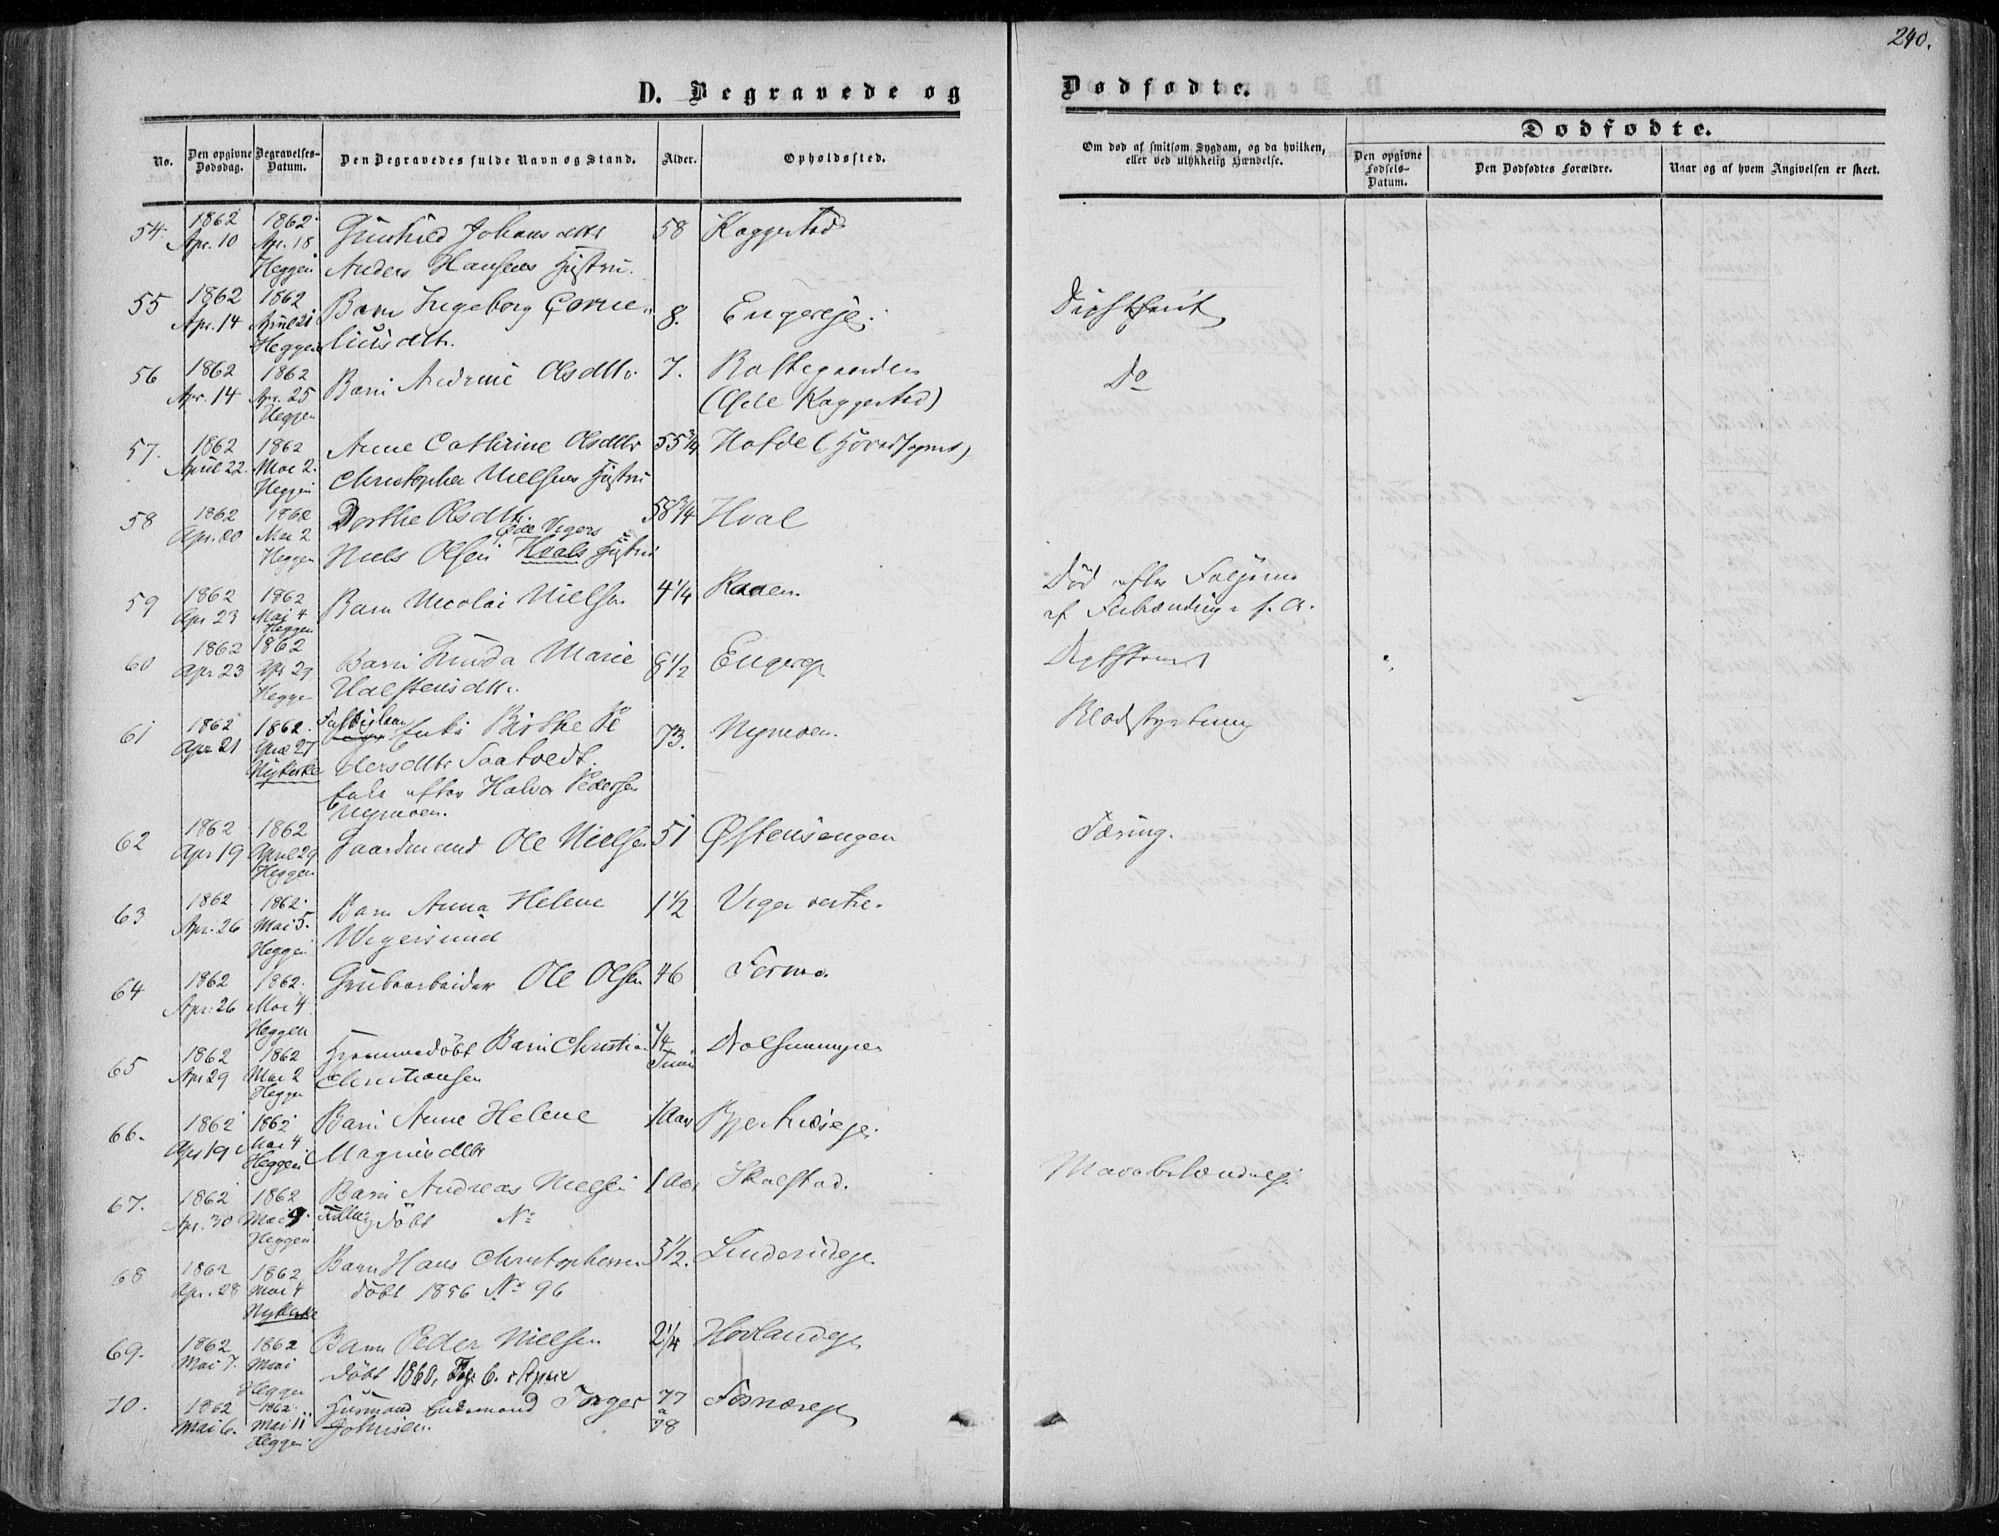 240.
D. Begravede og
Dødfødte.
No.
Den opgivne Dødsdag.
Begravelses-Datum.
Den Begravedes fulde Navn og Stand.
Alder.
Opholdssted.
Om død af smitsom Sygdom, og da hvilken, eller ved ulykkelig Hændelse.
Dødfødte.
Den opgivne Fødsels-Datum.
Den Dødfødtes Forældre.
Naar og af hvem Angivelsen er skeet.
54 1862 Apr. 10 1862 Apr. 18 Heggen
Gunhild Johansdtr
Anders Hansens Hustru.
58 Kaggestad
55 1862 Apr. 14 1862 April 21 Heggen
Barn Ingeborg Corne-
liusdtr.
8. Engereje.
56 1862 Apr. 14 1862 Apr. 25 Heggen
Barn Andrine Olsdtr.
7.
(Øde Kaggestad)
Do
57. 1862 April 22. 1862 Mai 2. Heggen
Anne Cathrine Olsdtr
Christopher Nielsens Hustru
55 3/4
58 1862 Apr. 20 1862 Mai 2 Heggen
Dorthe Olsdtr.
Niels Olsen Hvals Hustru
58 3/4 Hval
59 1862 Apr 23 1862 Mai 4 Heggen
Barn Nicolai Nielsen
4 1/4
Død efter Følgerne
af Forbrænding
60 1862 Apr 23 1862 Apr 29 Heggen
Barn Gunda Marie
Halstensdtr.
8 1/2
61 1862 Apr 21 1862. Apr 27 Nykirke
Enke Birthe Pe
dersdtr Saatvedt.
Enke efter Halvor Pedersen
Nymoen.
73. Nymoen.
Blodstyrtning
62 1862 Apr 19 1862 April 29 Heggen
Gaardmand Ole Nielsen
51 Østensengen
Tæring.
63 1862 Apr. 26 1862. Mai 5. Heggen
Barn Anna Helene
Wigersund
1 1/2 Viger vestre.
64 1862 Apr. 26 1862. Mai 4 Heggen
Grubearbeider Ole Olsen
46
65 1862 Apr 29 1862 Mai 2 Heggen
Hjemmedöbt Barn Christian
Christiansen
1/4
66. 1862 Apr 19 1862 Mai 4 Heggen
Barn Anne Helene
Magnusdtr
1 Aar
67. 1862 Apr. 30 1862 Mai 9. Heggen
Barn Andreas Nielsen
döbt No
1 Aar Skalstad.
Mavebetændelse
68 1862 Apr. 28 1862 Mai 4 Nykirke
Barn Hans Christophersen
döbt 1856 No 96
5 1/2.
69. 1862 Mai 7. 1862 Mai Heggen
Barn Peder Nielsen
döbt 1860,
2 1/4
70. 1862 Mai 6. 1862. Mai 11 Heggen
Husmand Enkemand Torger
Johnsen.
77 a 78